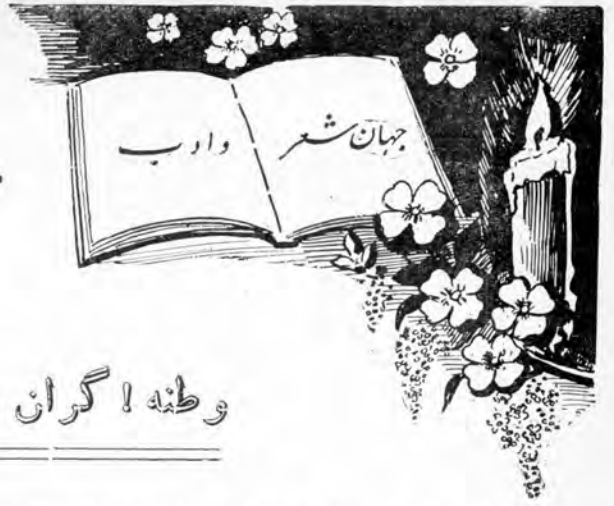 جهان شعر وادب
وطنه ! گران